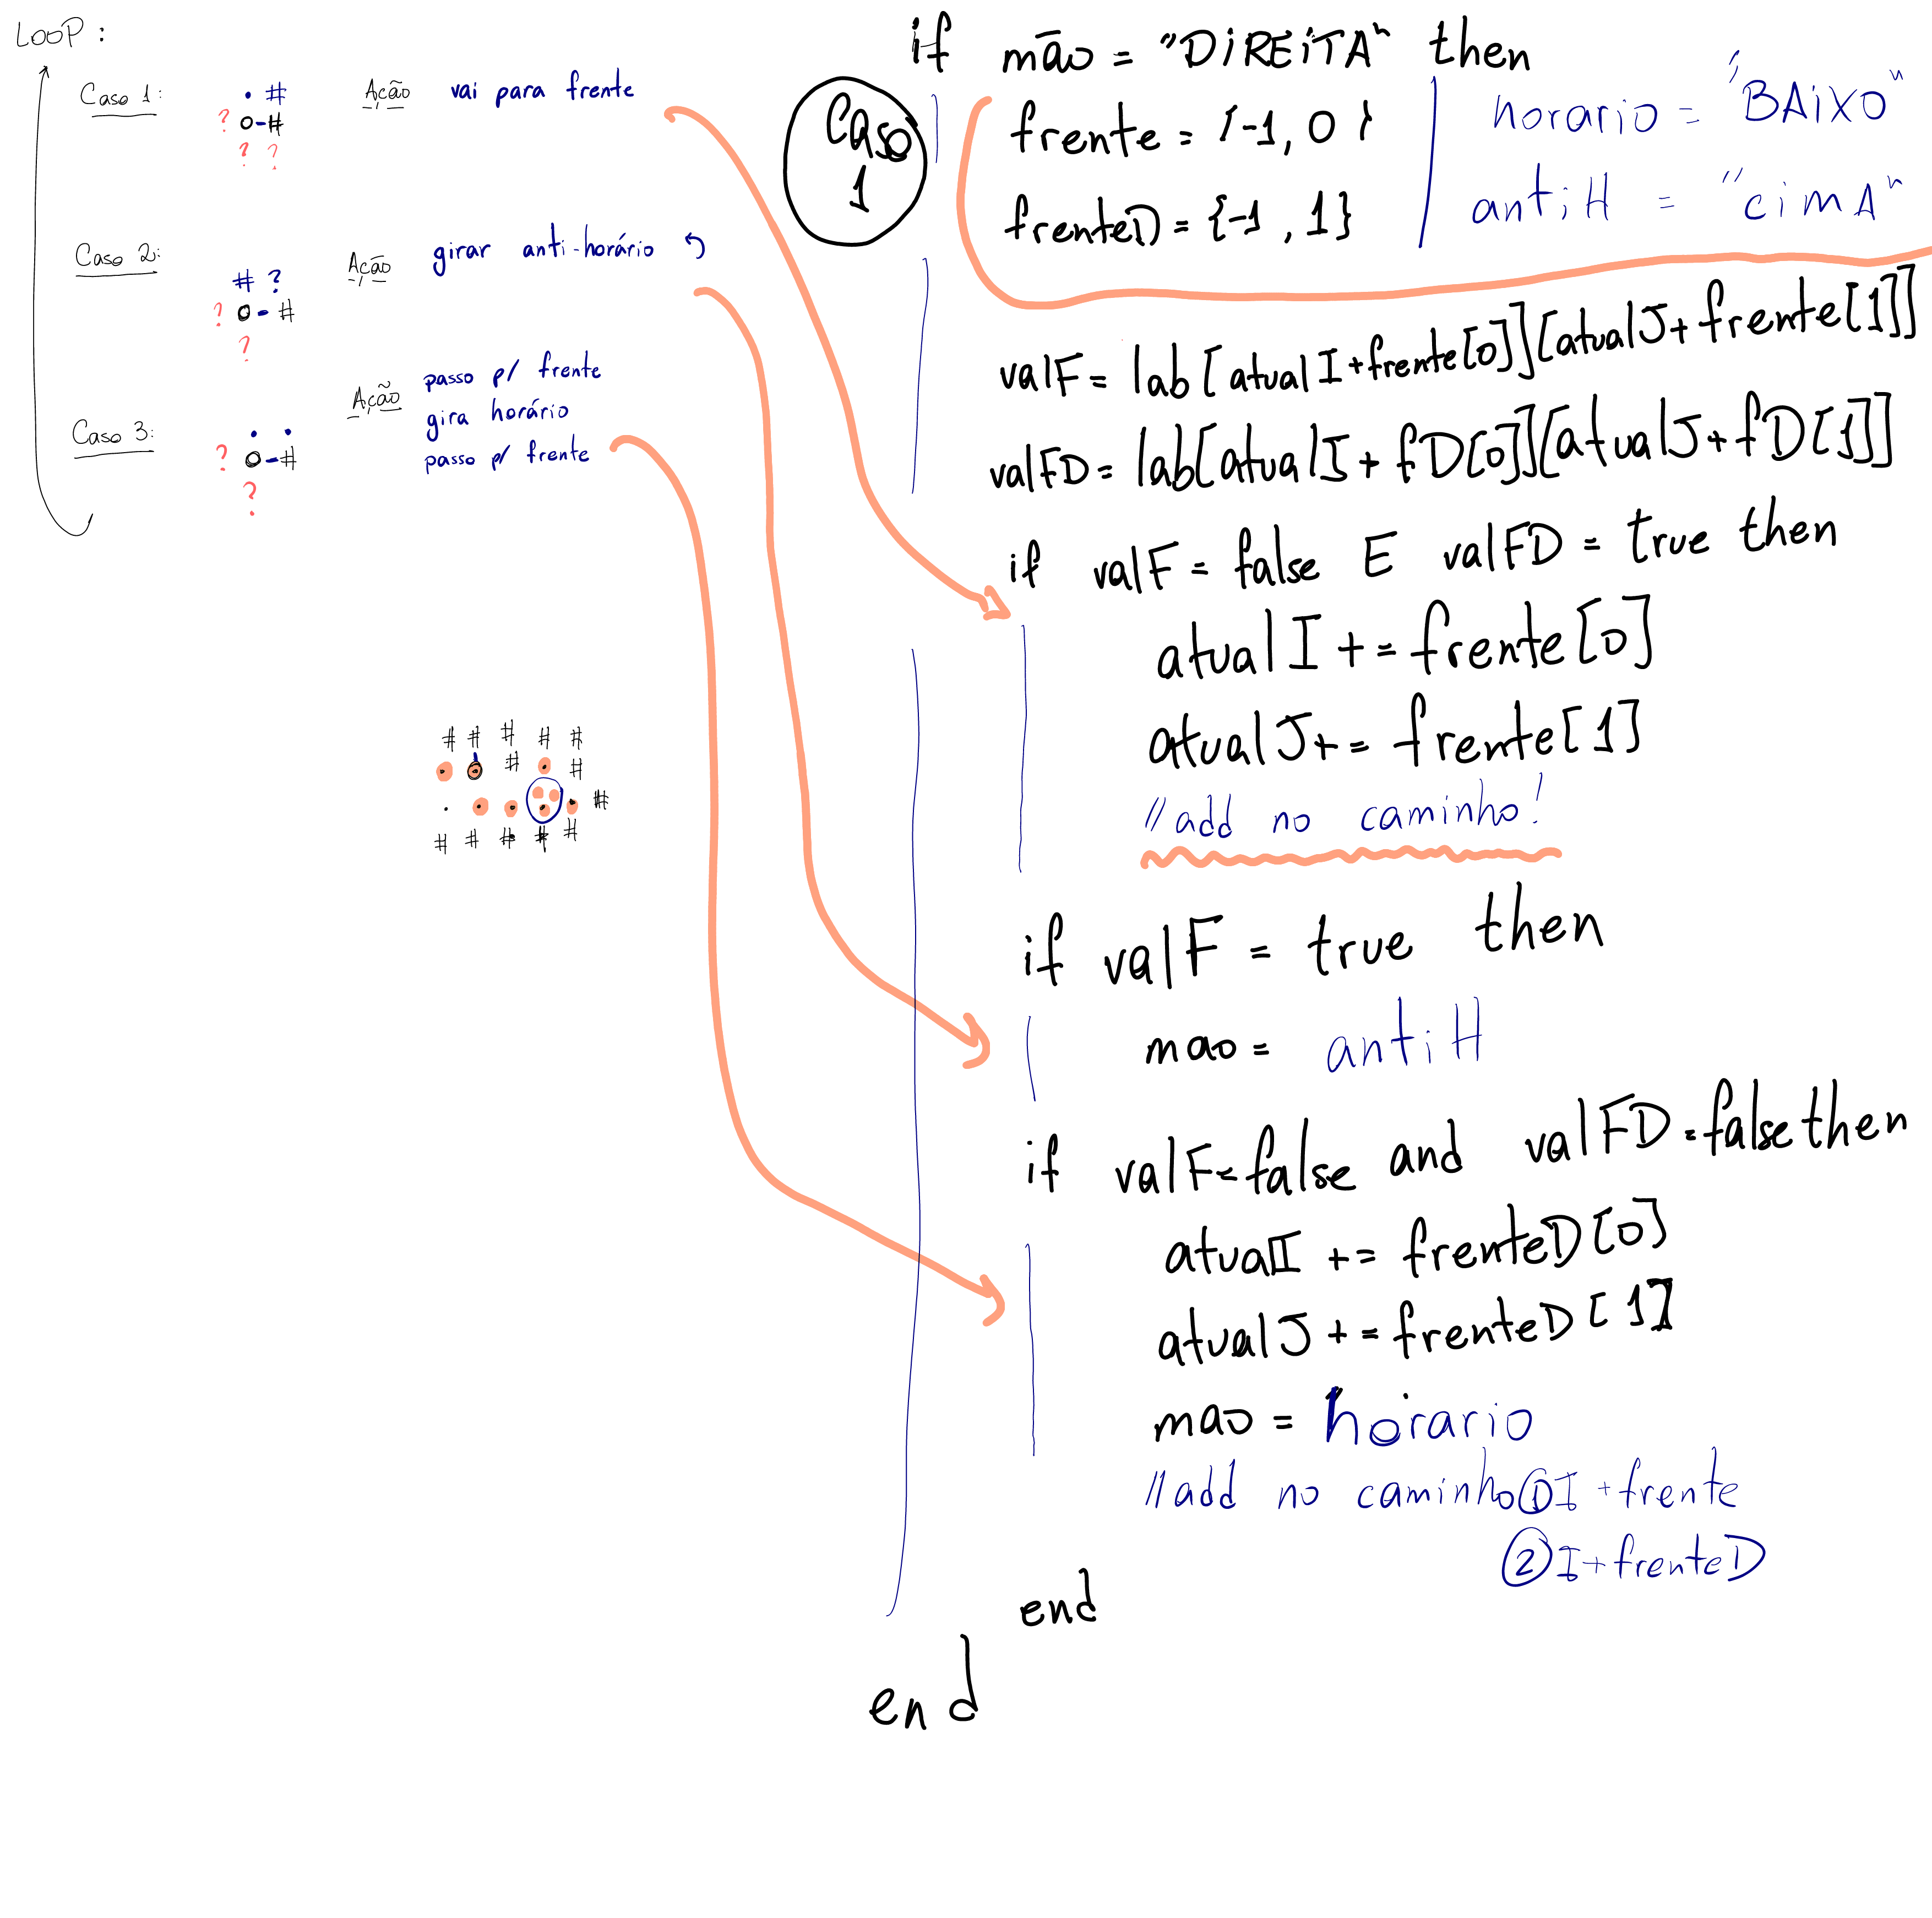 LOOP:
Caso 1:
. #
? o-#
? ?
Ação vai para frente
Caso 2:
# ?
? o-#
?
Ação girar anti-horário
Caso 3:
. .
? o-#
?
Ação passo p/ frente
gira horário
passo p/ frente
# # # # #
. . # . #
. . . . . #
# # # # #
Caso
1
if mão = "DIREITA" then
frente = {-1, 0}
frenteD = {-1, 1}
horario = "BAIXO"
antiH = "CIMA"
valF = lab[atualI+frente[0]][atualJ+frente[1]]
valFD = lab[atualI+fD[0]][atualJ+fD[1]]
if valF = false E valFD = true then
atualI += frente[0]
atualJ += frente[1]
//add no caminho!
if valF = true then
mao = antiH
if valF=false and valFD=false then
atualI += frenteD[0]
atualJ += frenteD[1]
mao = horario
//add no caminho ① I + frente
② I + frenteD
end
end